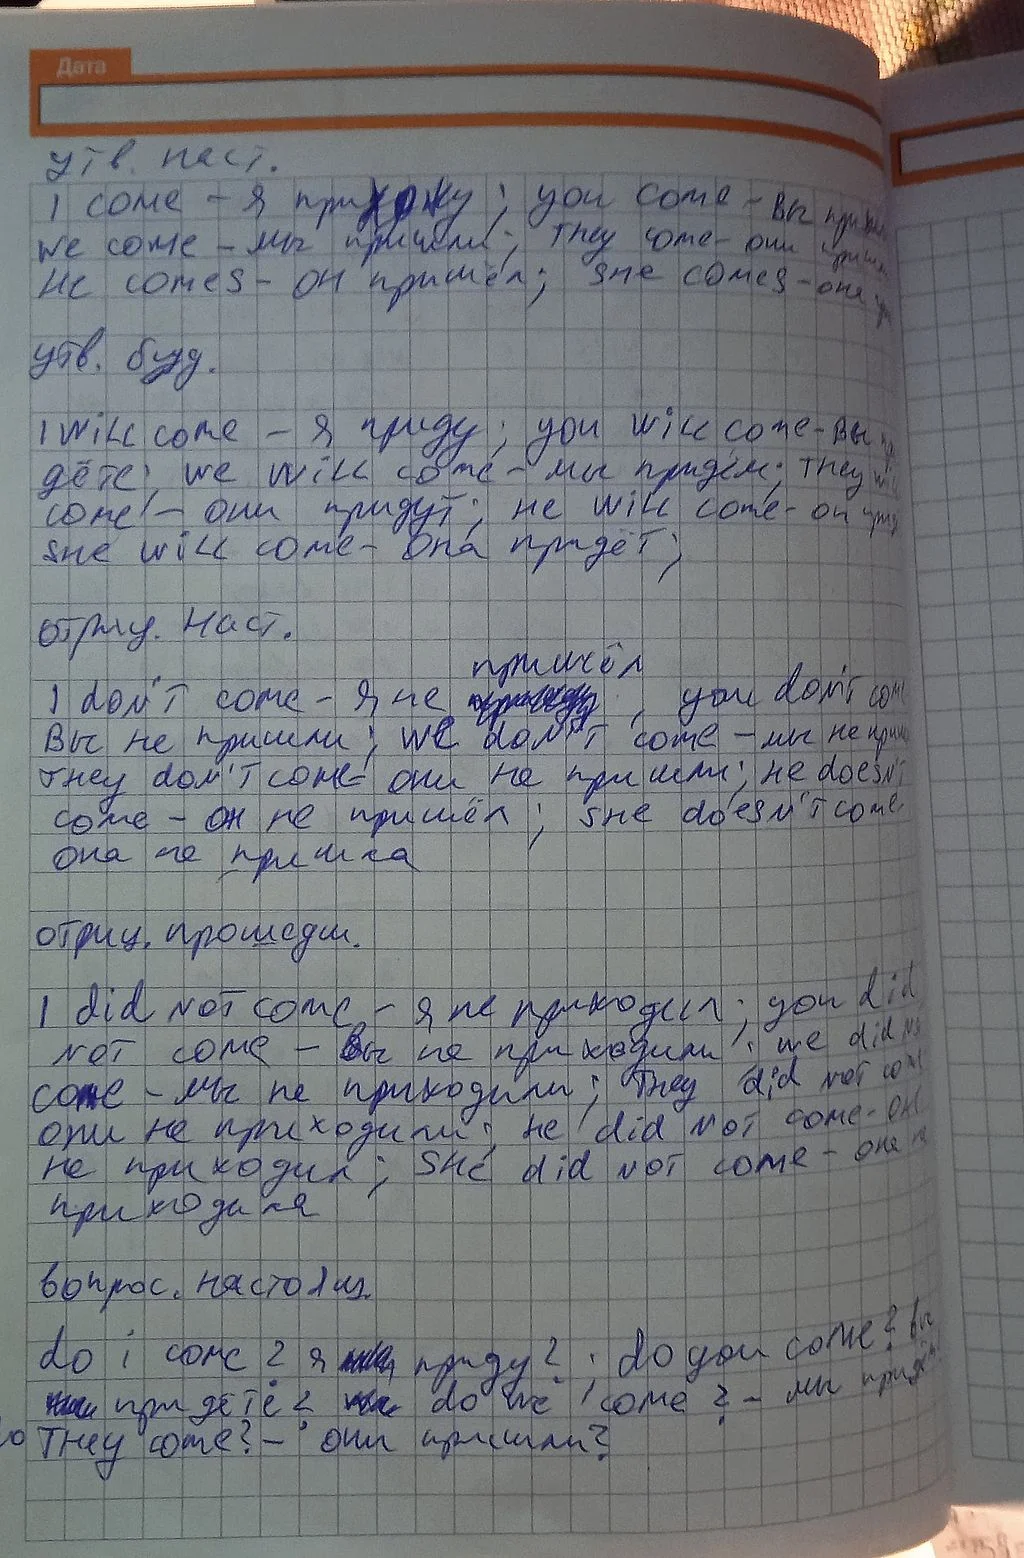 Дата
утв. наст.
I come - я прихожу; you come - вы
we come - мы пришли; They come - они
He comes - он пришёл; she comes - она
утв. буд.
I will come - я приду; you will come - вы
дёте; we will come - мы придём; They will
come - они придут; he will come - он
she will come - она придёт;
отриц. наст.
пришёл
I don't come - я не ; you don't come
вы не пришли; we don't come - мы не
They don't come - они не пришли; he doesn't
come - он не пришёл; she doesn't come
она не пришла
отриц. прошедш.
I did not come - я не приходил; you did
not come - вы не приходили; we did not
come - мы не приходили; They did not come
они не приходили; he did not come - он
не приходил; she did not come - она не
приходила
вопрос. настоящ.
do i come? я приду?; do you come? вы
придёте? do we come? - мы
They come? - они пришли?